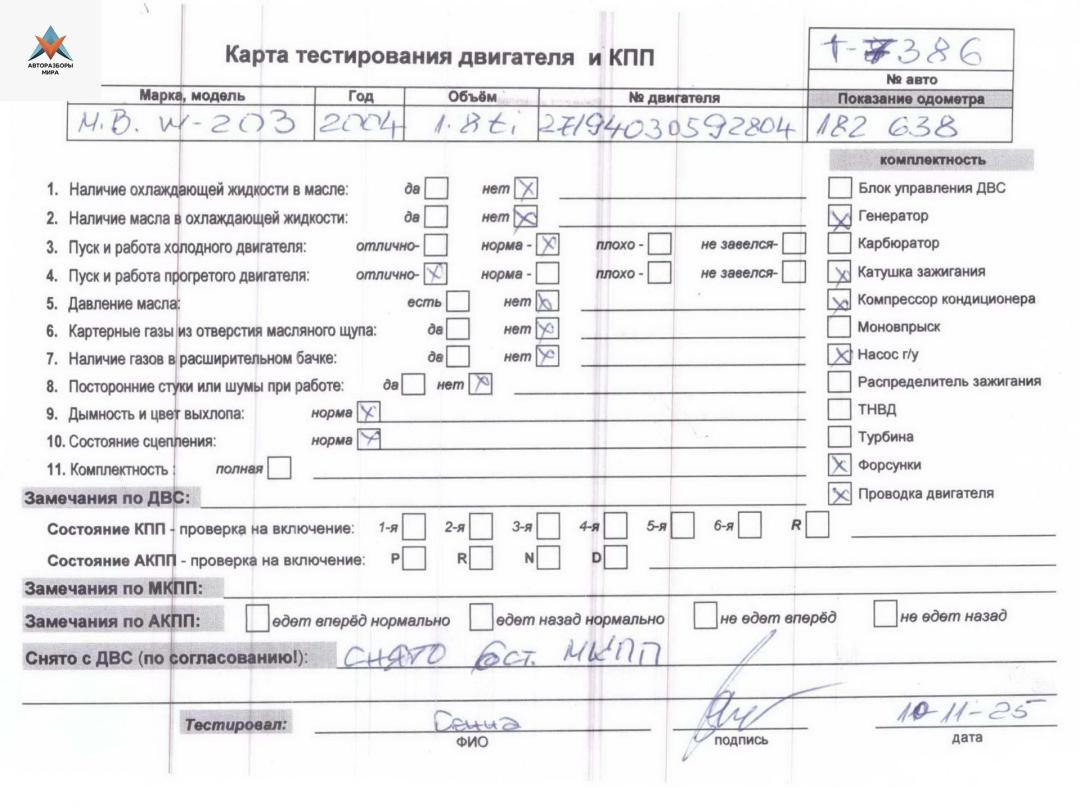 АВТОРАЗБОРЫ
МИРА
Карта тестирования двигателя и КПП
1-7386
№ авто
Марка, модель Год Объём № двигателя Показание одометра
M.B. W-203 2004 1.8ti 27194030592804 182 638
комплектность
1. Наличие охлаждающей жидкости в масле: да нет X
Блок управления ДВС
2. Наличие масла в охлаждающей жидкости: да нет X
X Генератор
3. Пуск и работа холодного двигателя: отлично- норма - X плохо - не завелся-
Карбюратор
4. Пуск и работа прогретого двигателя: отлично- X норма - плохо - не завелся-
X Катушка зажигания
5. Давление масла: есть нет X
X Компрессор кондиционера
6. Картерные газы из отверстия масляного щупа: да нет X
Моновпрыск
7. Наличие газов в расширительном бачке: да нет X
X Насос г/у
8. Посторонние стуки или шумы при работе: да нет X
Распределитель зажигания
9. Дымность и цвет выхлопа: норма X
ТНВД
10. Состояние сцепления: норма X
Турбина
11. Комплектность : полная
X Форсунки
Замечания по ДВС:
X Проводка двигателя
Состояние КПП - проверка на включение: 1-я 2-я 3-я 4-я 5-я 6-я R
Состояние АКПП - проверка на включение: P R N D
Замечания по МКПП:
Замечания по АКПП: едет вперёд нормально едет назад нормально не едет вперёд не едет назад
Снято с ДВС (по согласованию!): СНЯТО 6ст. МКПП
Тестировал:
ФИО подпись 10-11-25
дата